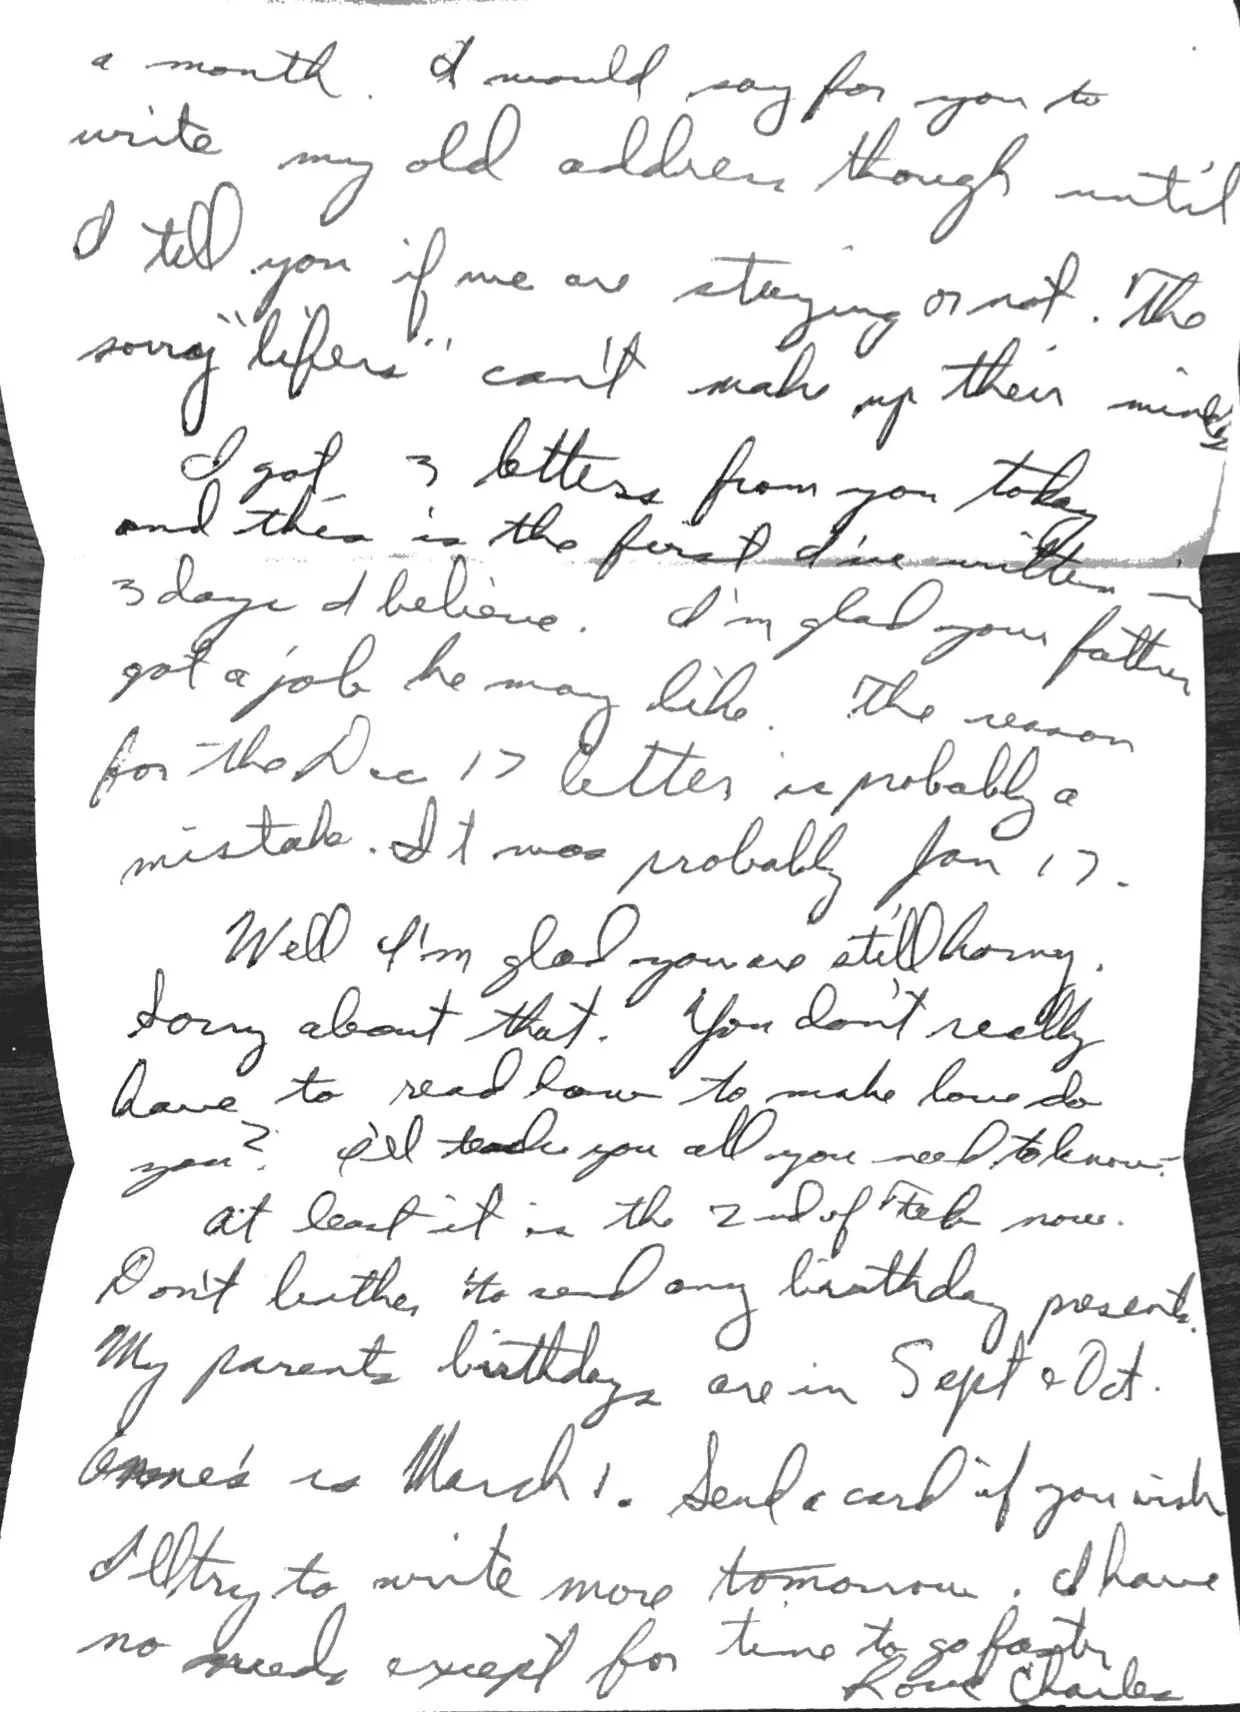 a month. I would say for you to
write my old address though until
I tell you if we are staying or not. The
sorry "lifers" can't make up their minds
I got 3 letters from you today
and this is the first I've written in
3 days I believe. I'm glad your father
got a job he may like. The reason
for the Dec 17 letter is probably a
mistake. It was probably Jan 17.
Well I'm glad you are still horny.
Sorry about that. You don't really
have to read how to make love do
you? I'll teach you all you need to know.
At least it is the 2nd of Feb now.
Don't bother to send any birthday presents.
My parents birthdays are in Sept & Oct.
is March 1. Send a card if you wish
I'll try to write more tomorrow. I have
no needs except for time to go faster
Love Charles